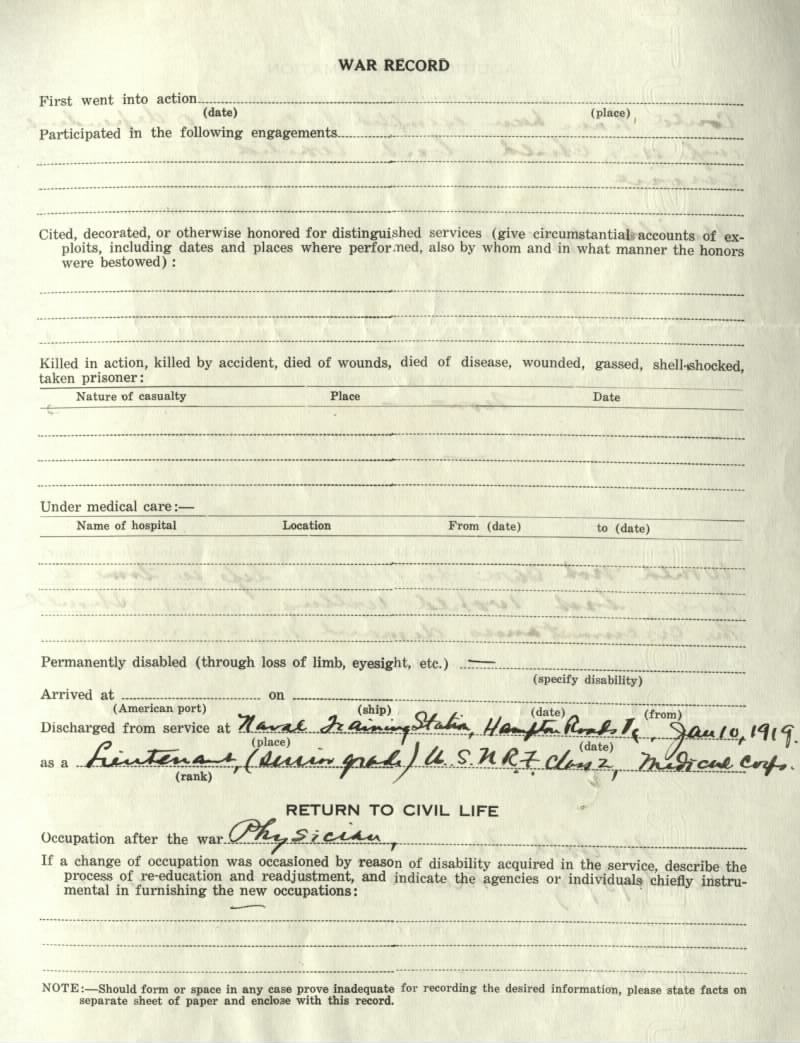 WAR RECORD
First went into action
(date) (place)
Participated in the following engagements
Cited, decorated, or otherwise honored for distinguished services (give circumstantial accounts of ex-
ploits, including dates and places where performed, also by whom and in what manner the honors
were bestowed) :
Killed in action, killed by accident, died of wounds, died of disease, wounded, gassed, shell-shocked,
taken prisoner:
Nature of casualty Place Date
Under medical care:—
Name of hospital Location From (date) to (date)
Permanently disabled (through loss of limb, eyesight, etc.) —
(specify disability)
Arrived at on
(American port) (ship) (date) (from)
Discharged from service at Naval Training Station, Hampton Roads Va, Jan 10, 1919.
(place) (date)
as a Lieutenant, (senior grade) U. S. N. R. F. Class 2, Medical Corps.
(rank)
RETURN TO CIVIL LIFE
Occupation after the war Physician,
If a change of occupation was occasioned by reason of disability acquired in the service, describe the
process of re-education and readjustment, and indicate the agencies or individuals chiefly instru-
mental in furnishing the new occupations:
—
NOTE:—Should form or space in any case prove inadequate for recording the desired information, please state facts on
separate sheet of paper and enclose with this record.